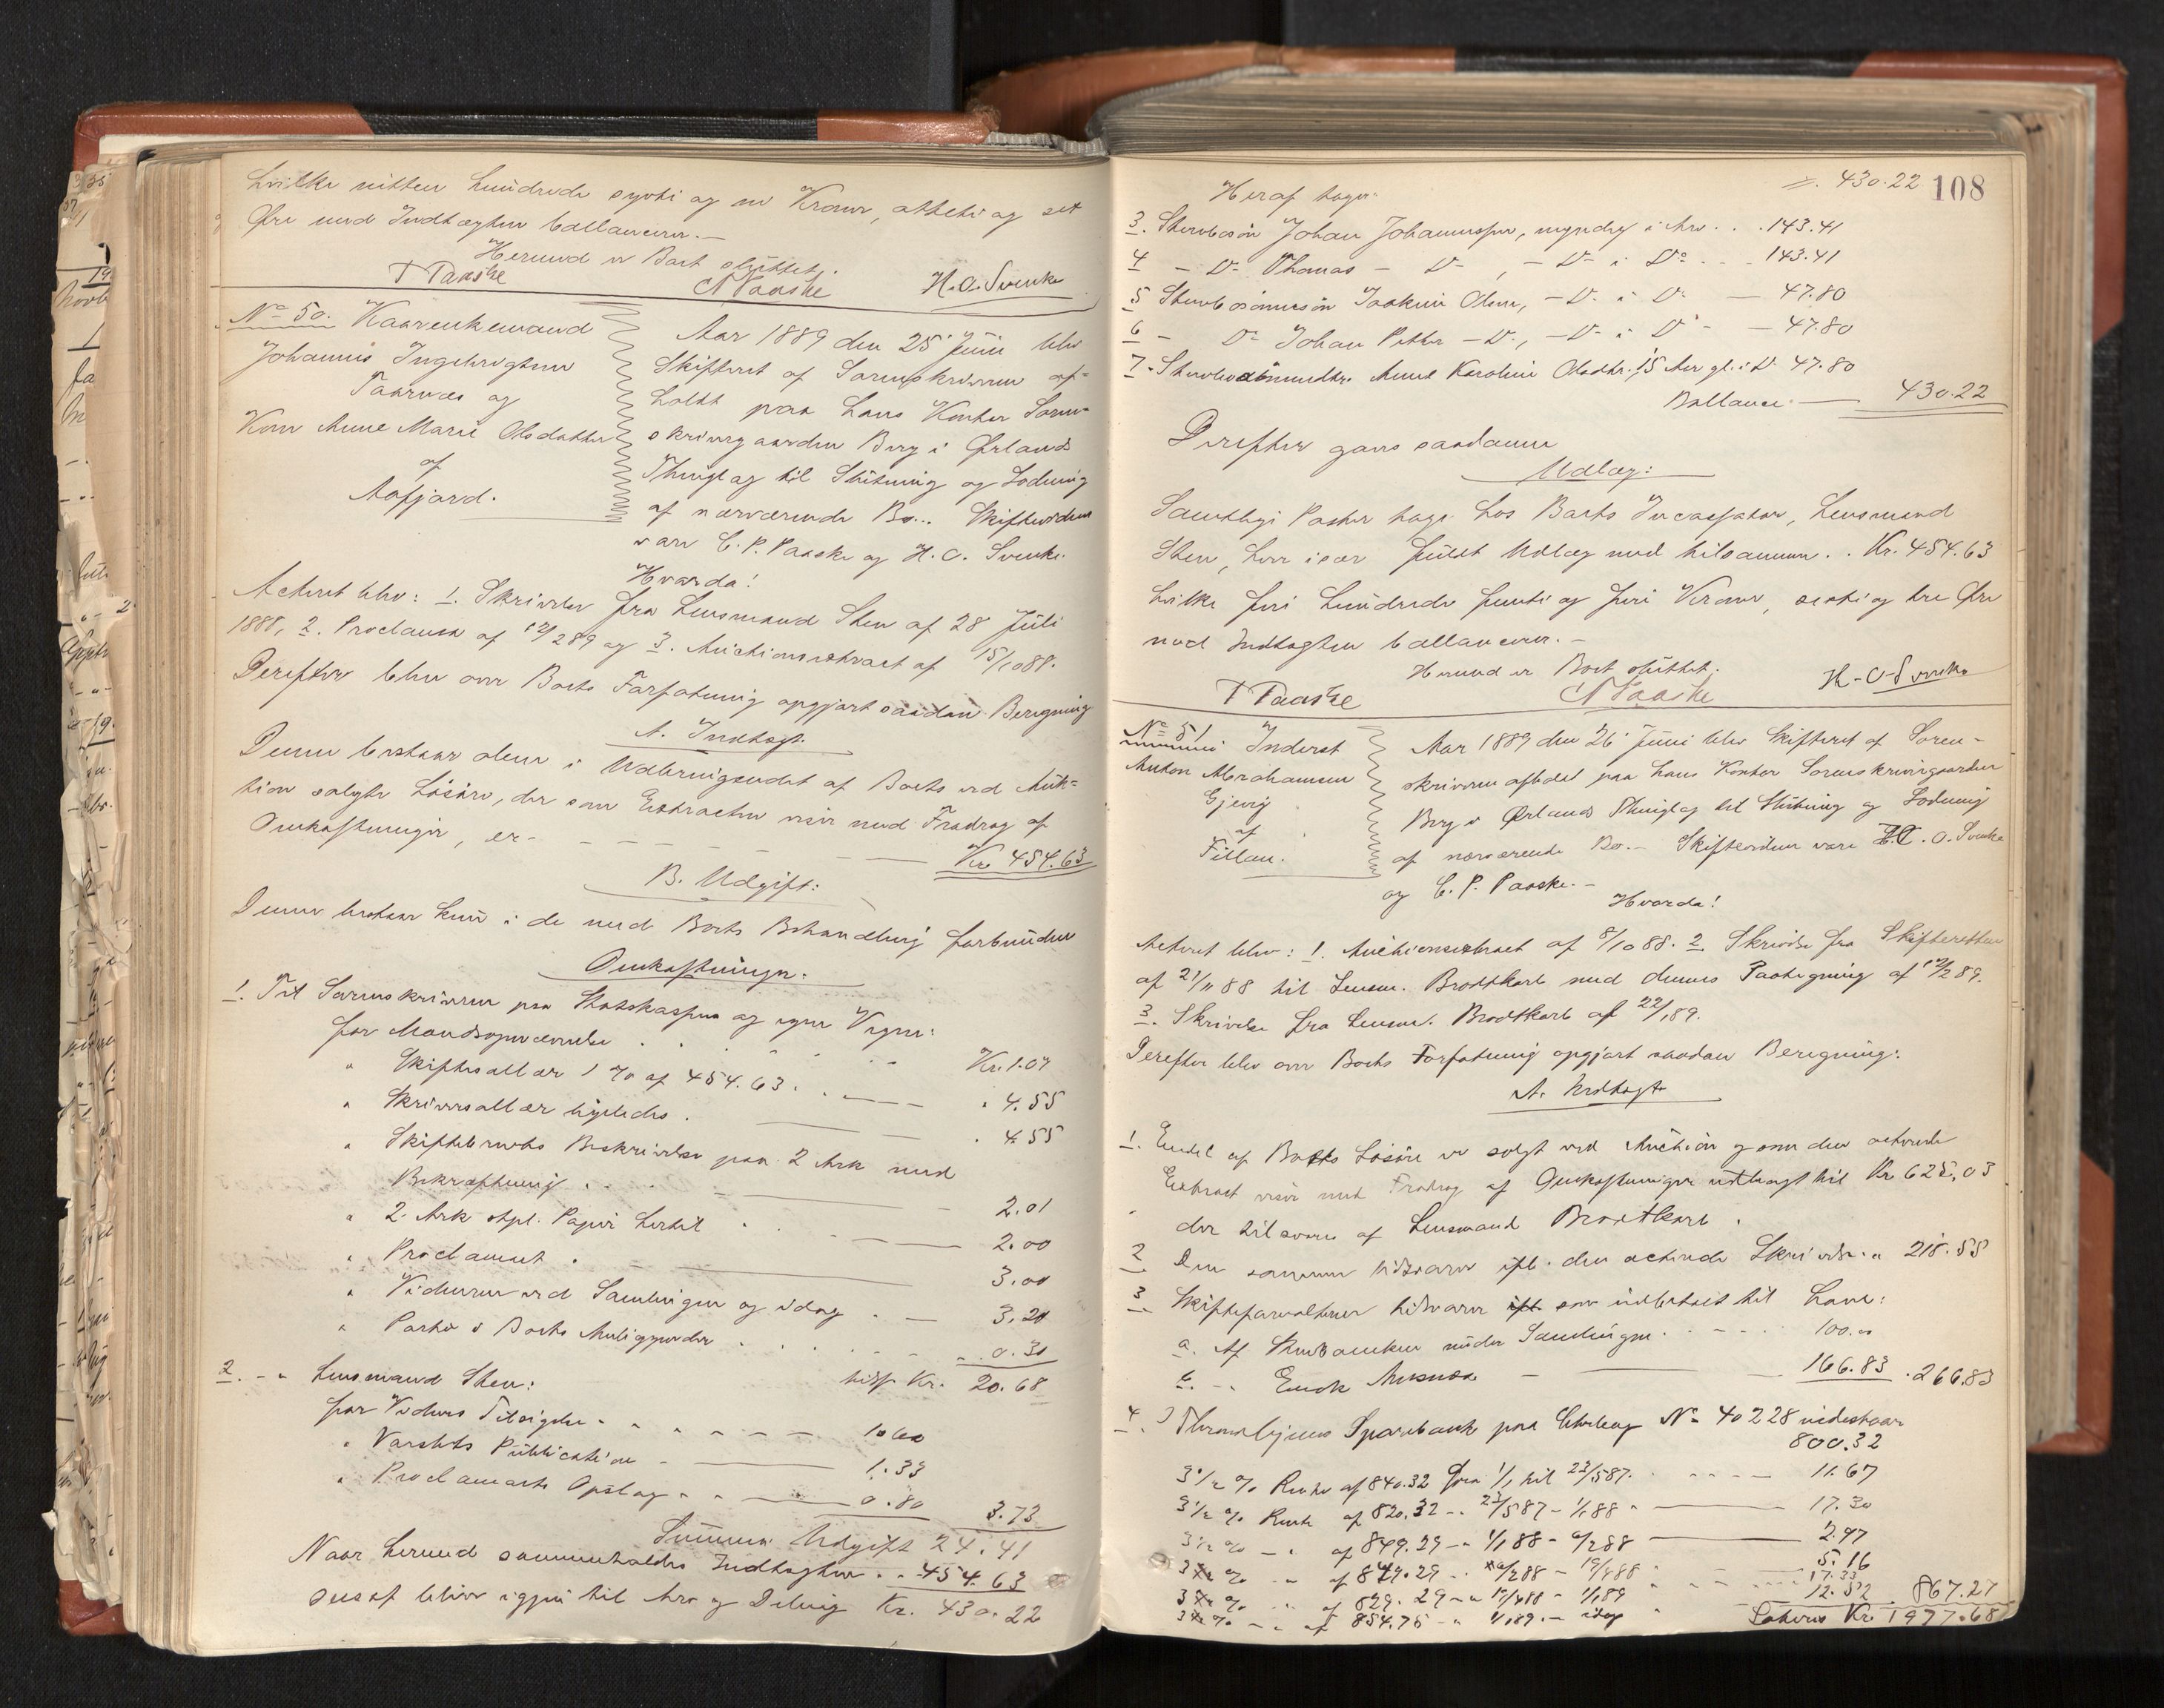 hvilke nitten hundrede syvti og ni Kroner, otteti og set
Øre med Indtægten ballancerer.—
Hermed er Boet sluttet.
T Paaske
C P Paaske
H. O. Svenke
No 50.
Kaarenkemand
Johannes Ingebrigtsen
Taarnes og
Kone Anne Marie Olsdatter
af
Aafjord.
Aar 1889 den 25 Juni blev
Skifteret af Sorenskriveren af-
holdt paa hans Kontor Soren-
skrivergaarden Berg i Ørlands
Thinglag til Slutning og Lodning
af nærværende Bo... Skiftevidner
vare C. P. Paaske og H. O. Svenke.
Hvorda!
Acteret blev: 1. Skrivelse fra Lensmand Sten af 28 Juli
1888, 2. Proclama af 12/2 89 og 3. Auctionsextract af 15/10 88.
Derefter blev over Boets Forfatning opgjort saadan Beregning
A. Indtægt.
Denne bestaar alene i Udbringendet af Boets ved Auk-
tion solgte Løsøre, der som Extracten viser med Fradrag af
Omkostninger, er - - - - - Kr. 454.63
B. Udgift:
Denne bestaar kun i de med Boets Behandling forbundne
Omkostninger:
1. Til Sorenskriveren paa Statskassens og egne Vegne:
for Mandsopnævnelse . . . Kr. 1.07
" Skiftesallær 1 % af 454.63 . — " 4.55
" Skriversallær ligeledes . — " 4.55
" Skiftebrevets Beskrivelse paa 2 Ark med
Bekræftning . . . — 2.01
" 2 Ark stpl. Papir hertil . — 2.00
" Proclamaet . — 3.00
" Vidnerne ved Samlingen og idag . — 3.20
" Porto i Boets Anliggender . . . 0.30
tils. Kr. 20.68
2. - " Lensmand Sten:
for Vidners Tilsigelse - - - - 1.60
" Varslets Publication - — 1.33
" Proclamaets Opslag - - — 0.80 3.73
Summa Udgift 24.41
Naar hermed sammenholdes Indtægten . . 454.63
sees at blive igjen til Arv og Deling Kr. 430.22
430.22
108
Heraf tager:
3. Stervbosøn Johan Johannessen, myndig i Arv . . . 143.41
4 — Do Thomas — Do , — Do i Do . . 143.41
5 Stervbosønnesøn Joakim Olsen, — Do i Do — 47.80
6 — Do Johan Petter — Do, — Do i Do — — 47.80
7. Stervbosønnedtr. Anne Karoline Olsdtr. 15 Aar gl. i Do 47.80
Ballance — 430.22
Derefter gøres saadanne
Udlæg:
Samtlige Poster tage hos Boets Incassator, Lensmand
Sten, hver især fuldt Udlæg med tilsammen . . Kr. 454.63
hvilke fire hundrede femti og fire Kroner, sexti og tre Øre
med Indtægten ballancerer. —
Hermed er Boet sluttet.
T Paaske
C P Paaske
H-O-Svenke
No 51
Inderst
Anton Abrahamsen
Gjevig
af
Fillan.
Aar 1889 den 26 Juni blev Skifteret af Soren-
skriveren afholdt paa hans Kontor Sorenskrivergaarden
Berg i Ørlands Thinglag til Slutning og Lodning
af nærværende Bo. — Skiftevidner vare H. O. Svenke
og C. P. Paaske. —
Hvorda!
Acteret blev: 1. Auctionsextract af 8/10 88. 2 Skrivelse fra Skifteretten
af 21/11 88 til Lensm. Brodtkorb med dennes Paategning af 12/2 89.
3. Skrivelse fra Lensm. Brodtkorb af 22/1 89.
Derefter blev over Boets Forfatning opgjort saadan Beregning:
A. Indtægt
1. Endel af Boets Løsøre er solgt ved Auction og som den acterede
Extract viser med Fradrag af Omkostninger udbragt til Kr. 625.03
der tilsvares af Lensmand Brodtkorb .
2 Den samme tilsvarer ifl. den acterede Skrivelse . " 218.55
3 Skifteforvalteren tilsvarer ifl. som indbetalt til ham:
a. Af under Samlingen . . . 100.00
b. - " Enok — — 166.83 . 266.83
4. I Throndhjems Sparebank paa Contrabog No 40228 indestaar
800.32
3 1/2 % Rente af 840.32 fra 1/1 til 23/5 87. . . . 11.67
3 1/2 % Rente af 820.32 - " 23/5 87 - 1/1 88 " — 17.30
3 1/2 % — " af 849.29 - " 1/1 88 - 6/2 88 — 2.97
3 % " " af 849.29 " 6/2 88 - 19/4 88 " — 5.16
3 % " " af 829.29 - " 19/4 88 - 1/1 89 " " 17.33
3 % - " af 854.75 - " 1/1 89. - idag 12.52 867.27
Lateris Kr. 1977.68